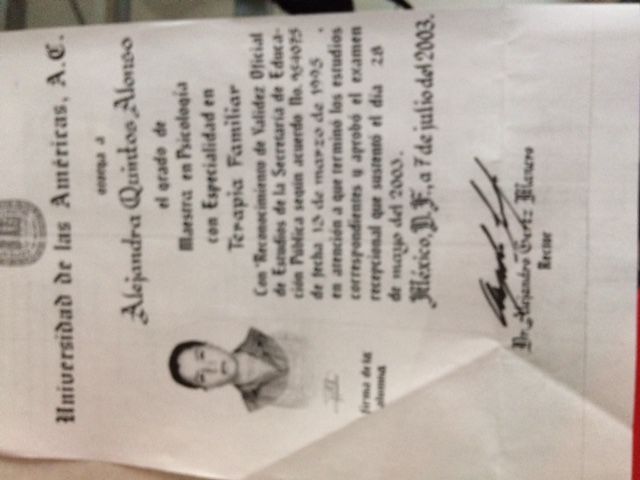 Universidad de las Américas, A.C.
otorga a
Alejandra Quintos Alonso
el grado de
Maestra en Psicología
con Especialidad en
Terapia Familiar
Con Reconocimiento de Validez Oficial
de Estudios de la Secretaría de Educa-
ción Pública según acuerdo No. 954075
de fecha 13 de marzo de 1995,
en atención a que terminó los estudios
correspondientes y aprobó el examen
recepcional que sustentó el día 28
de mayo del 2003.
México, D.F., a 7 de julio del 2003.
firma de la
alumna
Dr. Alejandro
Rector